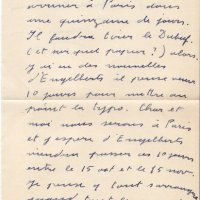 arriver à Paris dans
une quinzaine de jours.
Il faudra tirer le Dubuf.
(et sur quel papier ?) alors.
J'ai eu des nouvelles
d'Engelberts il pense venir
10 jours pour mettre au
point la typo. Char et
moi nous serons à Paris
et j'espère d'Engelberts
viendra passer ces 10 jours
entre le 15 oct et le 15 nov.
Je pense y tout s'arrangera
quand